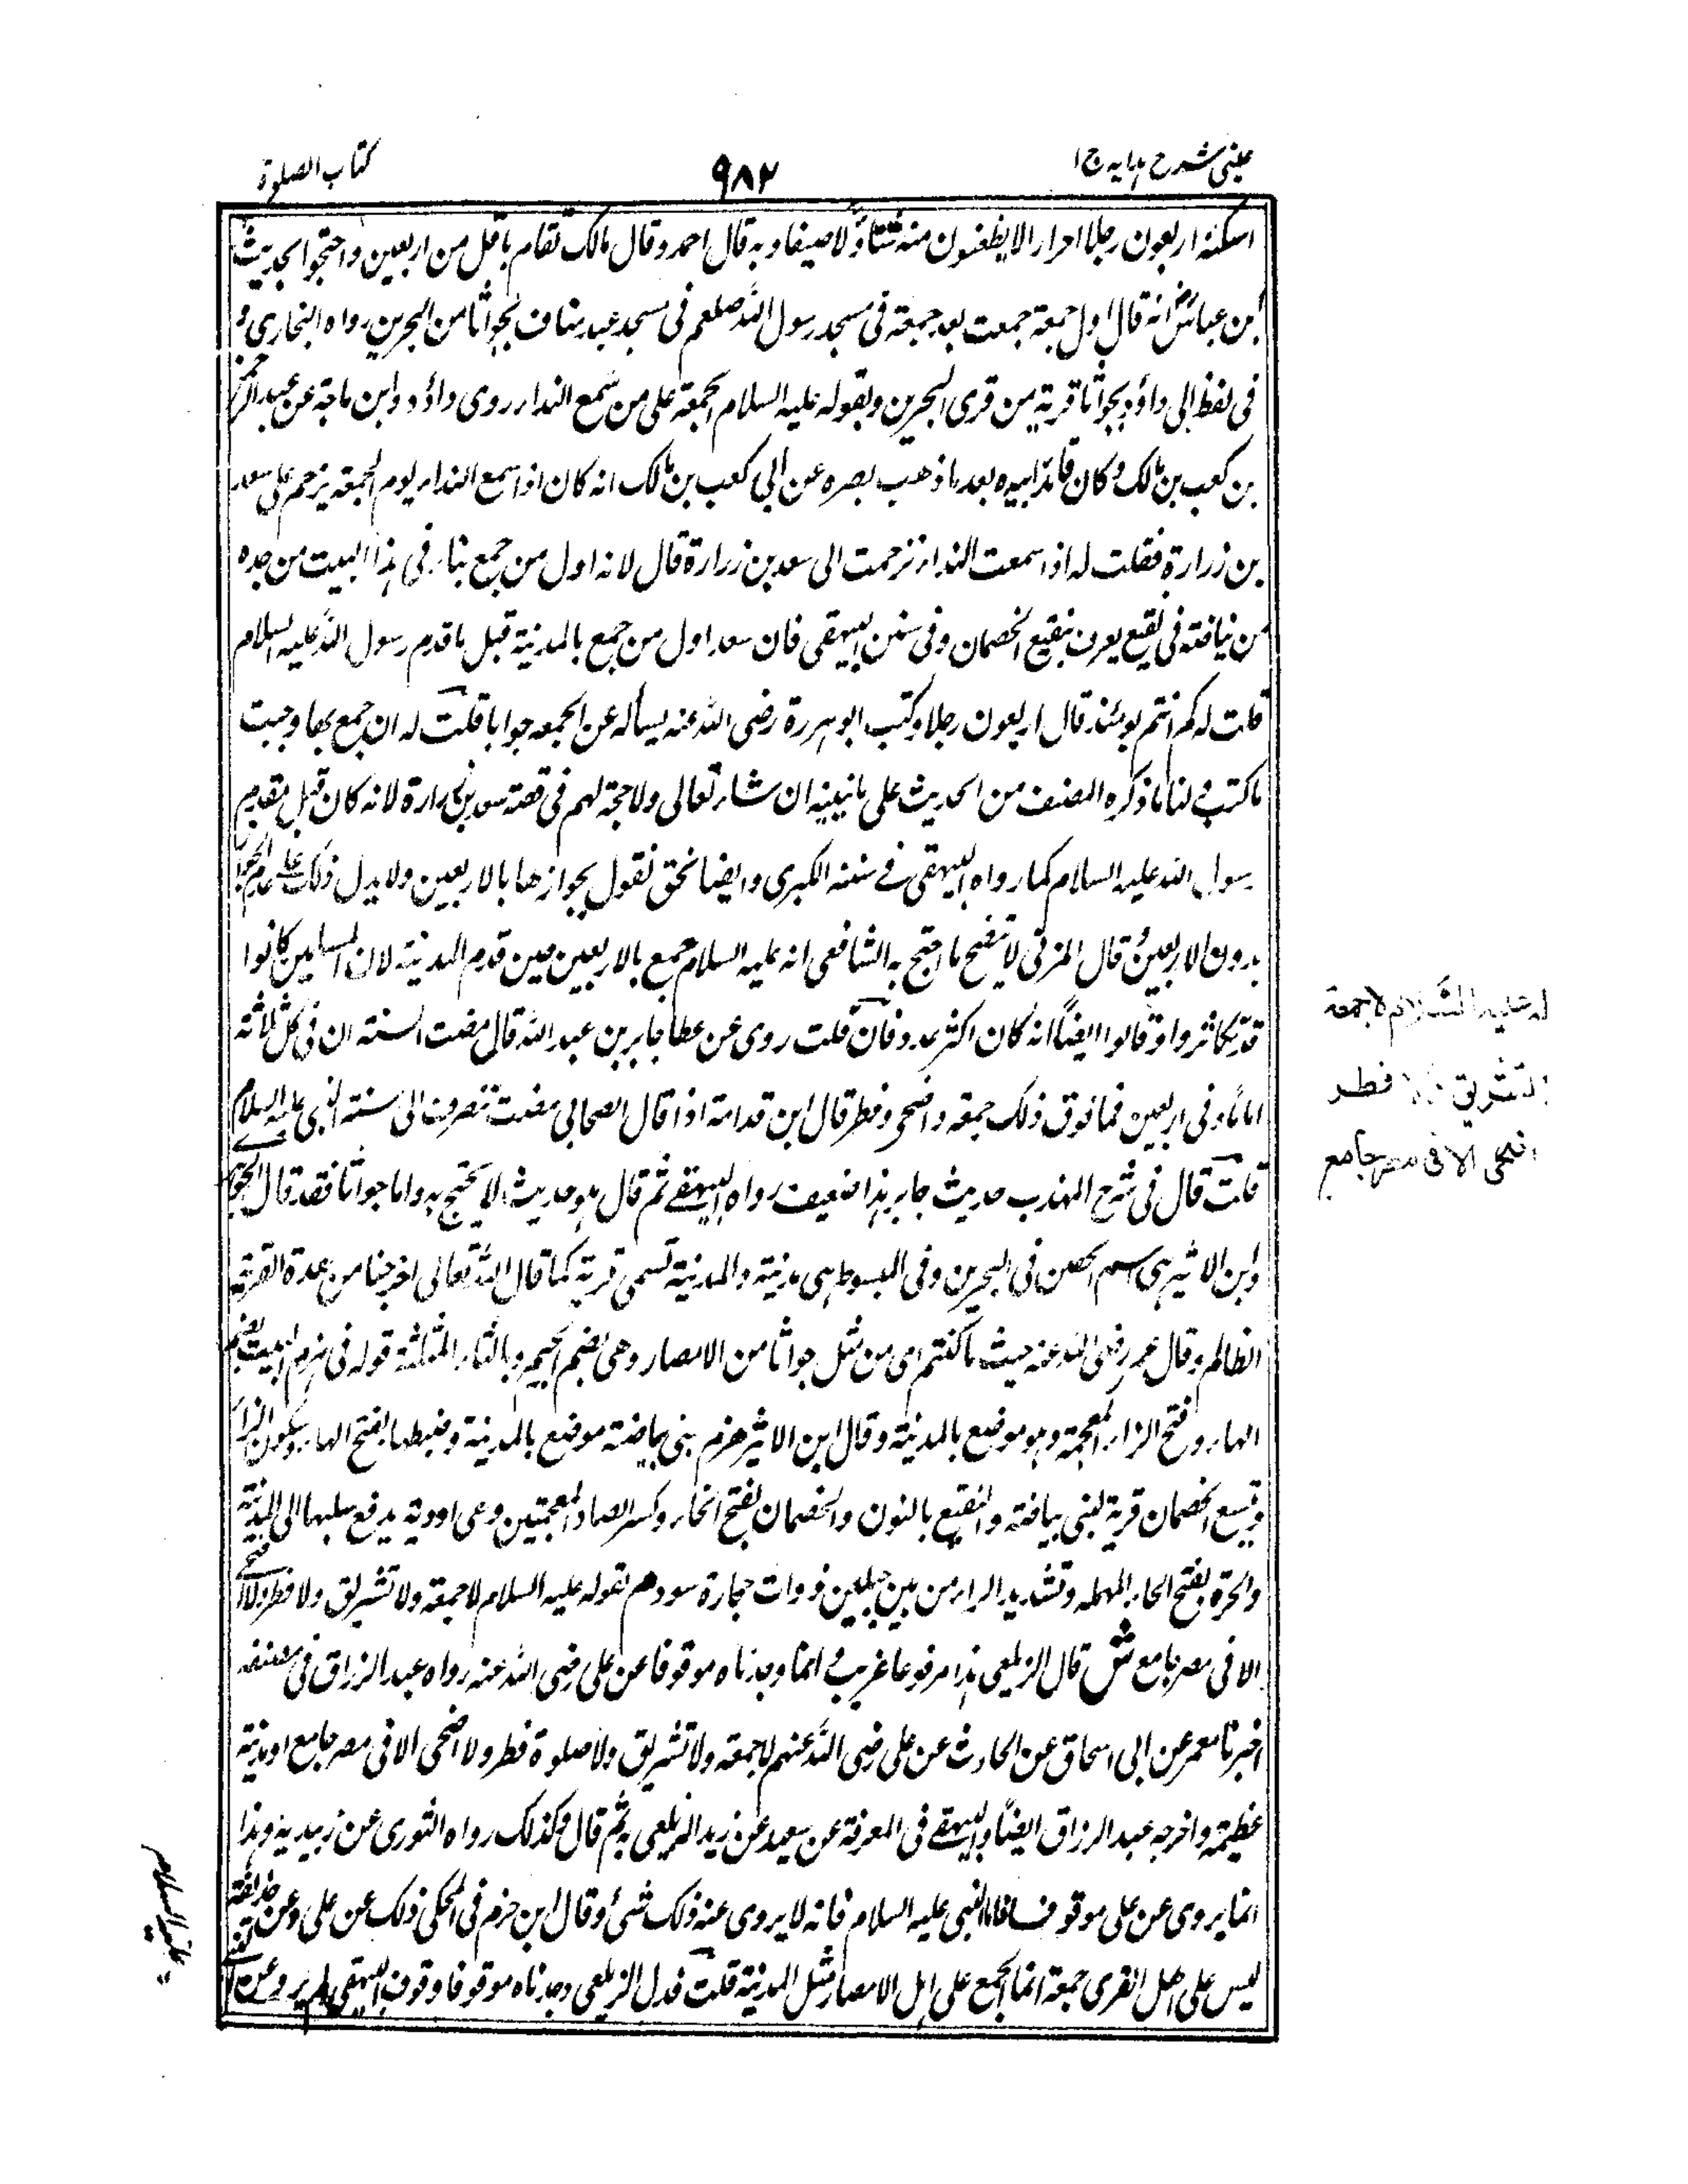 عینی شرح ہدایہ ج ۱
۹۸۲
کتاب الصلوة
اسكنه اربعون رجلا احرار الا يظعنون منه شتاؤ لا صيفا وبه قال احمد وقال مالك تقام باقل من اربعين واحتجوا بحديث
ابن عباس رض انه قال اول جمعة جمعت بعد جمعة فى مسجد رسول الله صلعم فى مسجد عبد مناف بجواثا من البحرين رواه البخارى و
فى لفظ ابى داؤد بجواثا قرية من قرى البحرين وبقوله عليه السلام الجمعة على من سمع النداء روى داؤد وابن ماجة عن عبد الرحمن
بن كعب بن مالك وكان قائد ابيه بعد ما ذهب بصره عن ابى كعب بن مالك انه كان اذا سمع النداء يوم الجمعة يرحم على سعد
بن زرارة فقلت له اذا سمعت النداء ترحمت الى سعد بن زرارة قال لانه اول من جمع بنا فى هذا البيت من جده
من نيافته فى نقيع يعرف بنقيع الخصمان وفى سنن البيهقى فان سعد اول من جمع بالمدينة قبل ما قدم رسول الله عليه السلام
قلت له كم انتم يومئذ قال اربعون رجلا وكتب ابو هريرة رضى الله عنه يسأله عن الجمعه جوابا قلت له ان جمع بها وجبت
ما كتب و لنا ما ذكره المصنف من الحديث على ما نبينه ان شاء تعالى ولا حجة لهم فى قصة سعد بن زرارة لانه كان قبل مقدم
رسول الله عليه السلام كما رواه البيهقى فے سننه الكبرى وايضا نحن نقول بجوازها بالاربعين ولا يدل ذلك على عدم الجواز
بدون الاربعين قال المزنى لا يصح ما احتج به الشافعى انه عليه السلام جمع بالاربعين حين قدم المدينة لان المسلمين كانوا
قد تكاثروا وقالوا ايضا انه كان اكثر عدد فان قلت روى عن عطا جابر بن عبد الله قال مضت السنة ان فى كل ثلاثة
اماما وفى اربعين فما فوق ذلك جمعة واضحى وفطر قال ابن قدامة اذا قال الصحابى مضت تنصرف الى سنة النبى عليه السلام
قلت قال فى شرح المهذب حديث جابر هذا ضعيف رواه البيهقے ثم قال هو حديث لا يحتج به واما جواثا فقد قال الجوهرى
وابن الاثير هى اسم لحصن فى البحرين وفى المبسوط هى مدينة والمدينة تسمى قرية كما قال الله تعالى اخرجنا من هذه القرية
الظالم وقال عمر رضى الله عنه حيث ما كنتم اى من مثل جواثا من الامصار وهى بضم الجيم وبالثاء المثلثة قوله فى هزم البيت بضم
الهاء وفتح الزاء المعجمة وهو موضع بالمدينة وقال ابن الاثير هزم بنى بياضة موضع بالمدينة وضبطها بفتح الهاء وسكون الزاء
ونقيع الخصمان قرية لبنى بياضة والنقيع بالنون والخصمان بفتح الخاء وكسر الصاد المعجمتين وهى اودية يدفع سيلها الى المدينة
والحرة بفتح الحاء المهملة وتشديد الراء من بين جبلين ذوات حجارة سود هم لقوله عليه السلام لا جمعة ولا تشريق ولا فطر ولا اضحى
الا فى مصر جامع ش قال الزيلعى هذا مرفوعا غريب و انما وجدناه موقوفا عن على رضى الله عنه رواه عبد الرزاق فى مصنفه
اخبرنا معمر عن ابى اسحاق عن الحارث عن على رضى الله عنهم لا جمعة ولا تشريق ولا صلوة فطر ولا اضحى الا فى مصر جامع او مدينة
عظيمة واخرجه عبد الرزاق ايضا والبيهقے فى المعرفة عن سعيد عن زيد الزيلعى به ثم قال وكذلك رواه الثورى عن زبيد به وهذا
انما يروى عن على موقوف فاما النبى عليه السلام فانه لا يروى عنه ذلك شئ وقال ابن حزم فى المحكى ذلك عن على وعن حذيفة
ليس على اهل القرى جمعة انما الجمع على اهل الامصار مثل المدينة قلت قول الزيلعى وجدناه موقوفا وقوف البيهقى لم يرو عن
له عليه السلام لا جمعة
لا تشريق ولا فطر
اضحى الا فى مصر جامع
عليه السلام